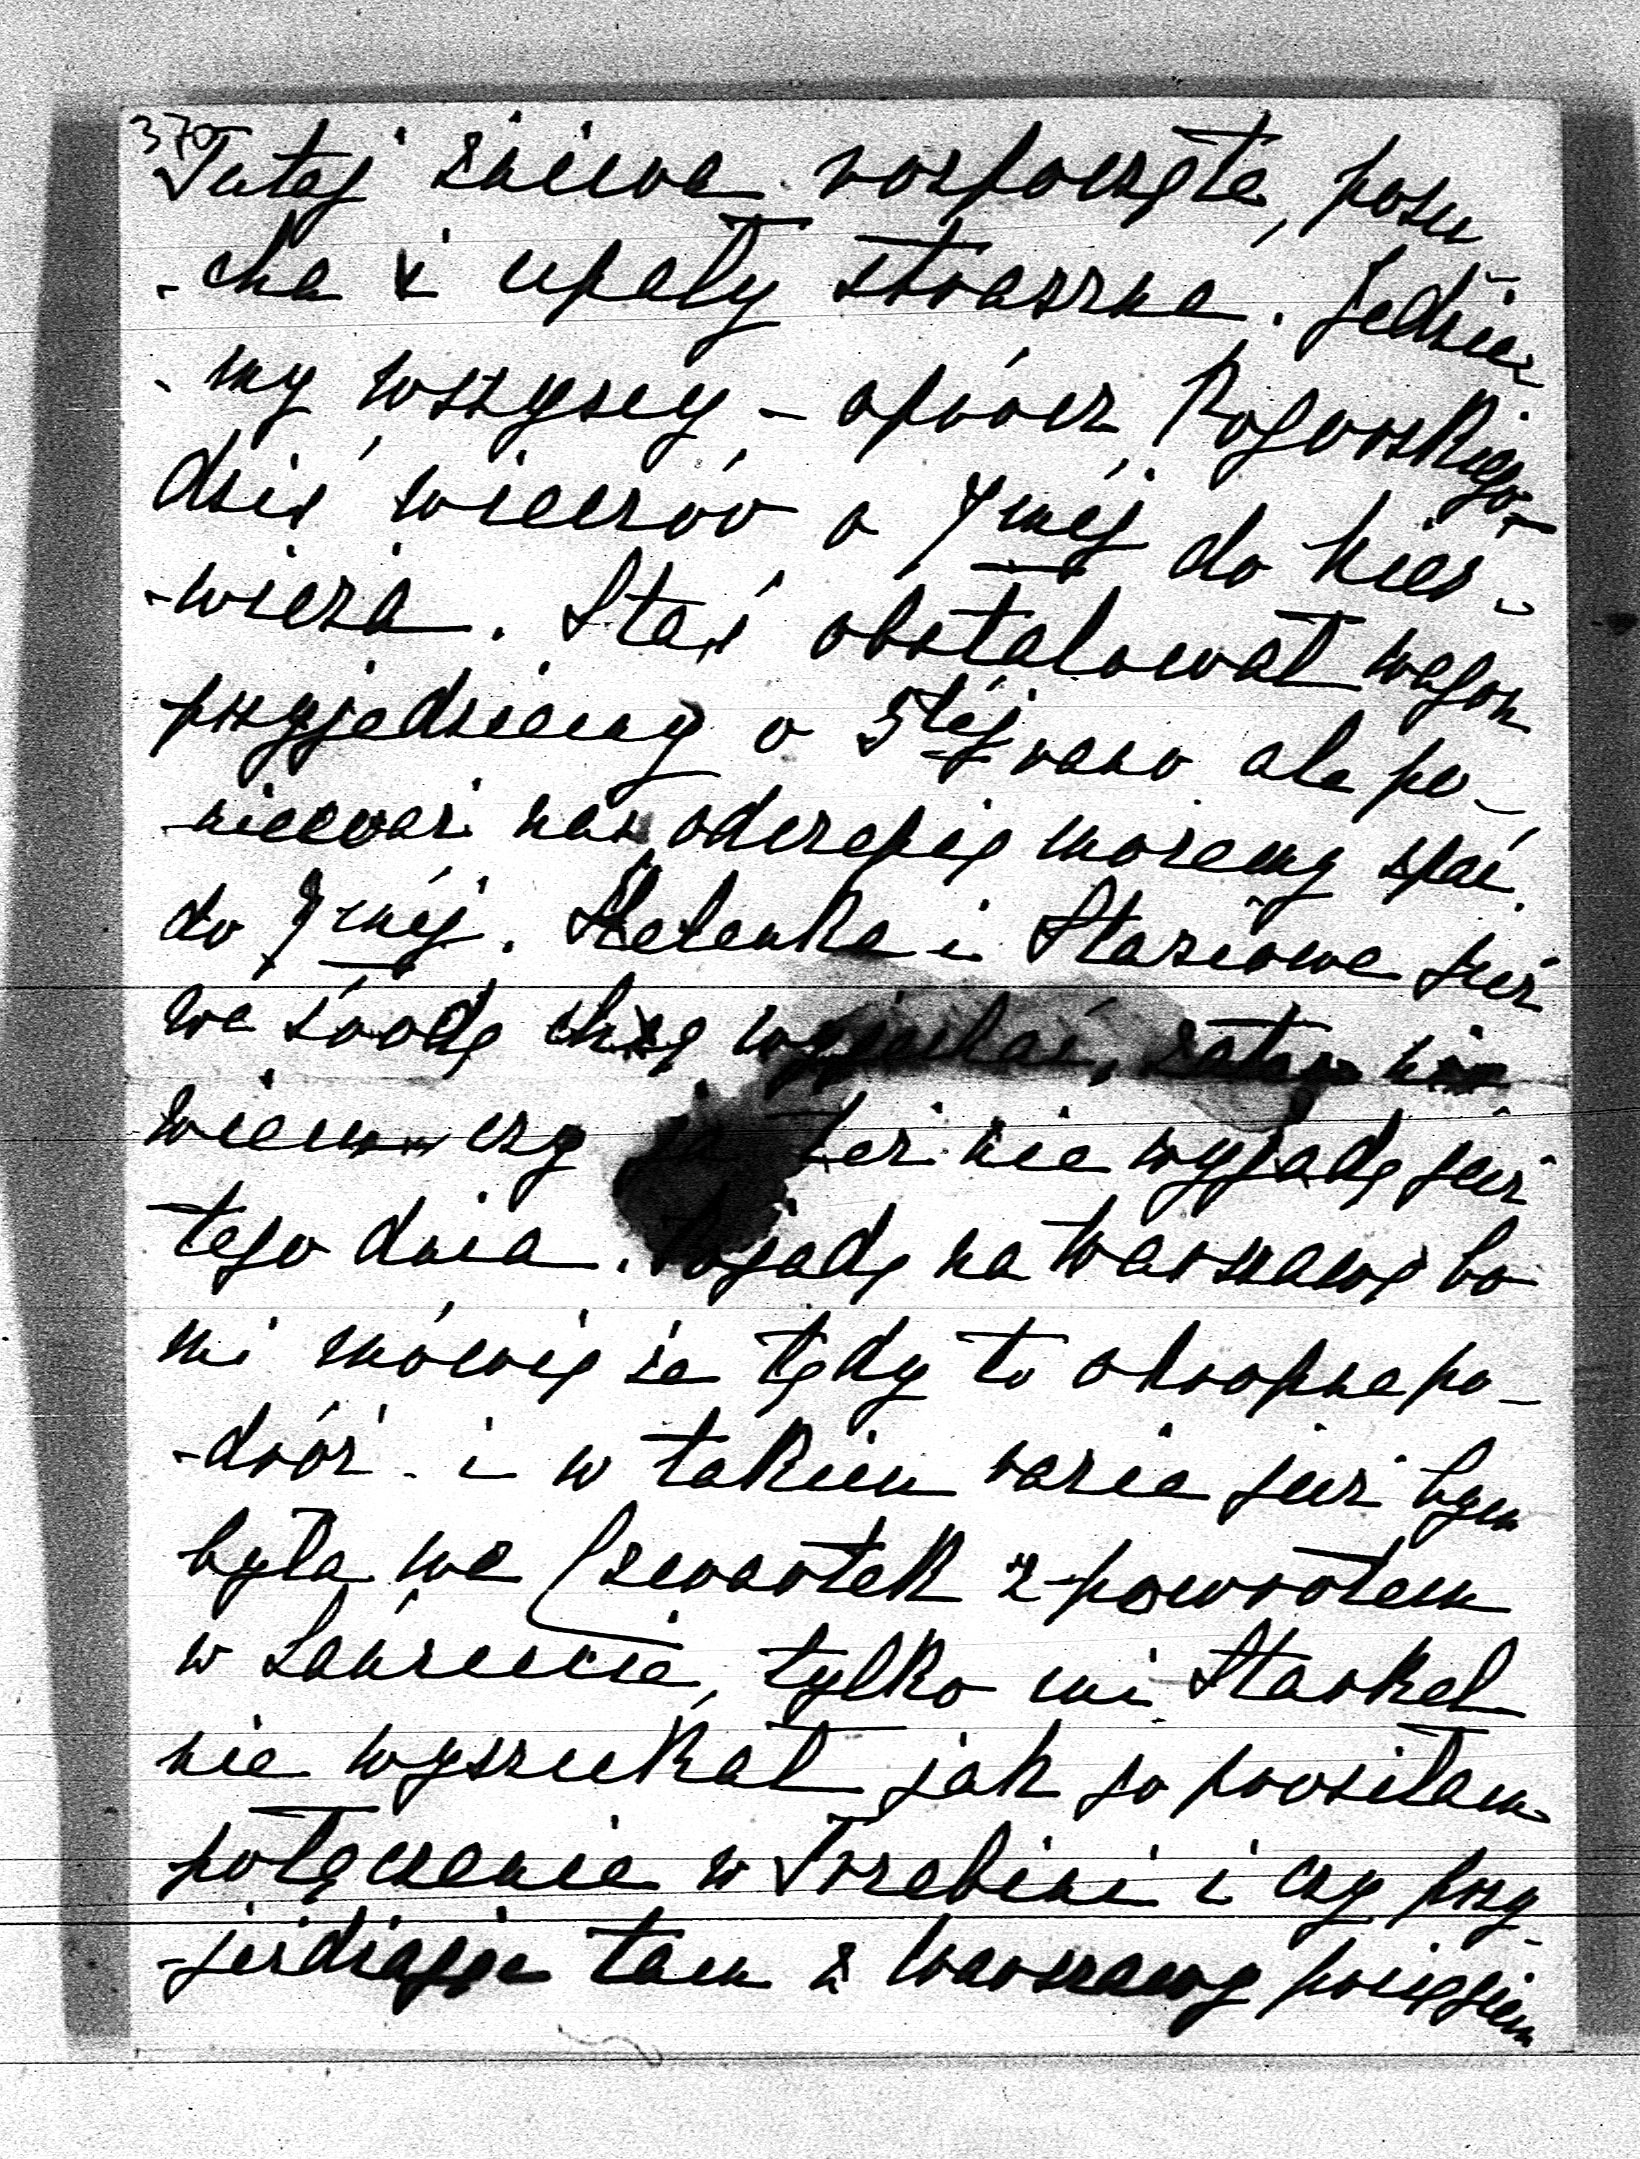 370
Tutaj żniwa rozpoczęte, posu
-cha i upały straszne. Jedzie
-my wszyscy – oprócz Rogowskiego –
dziś wieczór o 7méj do Nieś-
-wieża. Staś obstalował wagon
przyjedziemy o 5téj rano ale po-
-nieważ nas odczepią możemy spać
do 7méj. Helenka i Stasiowie już
we środę chcą wyjechać, zatem nie
wiem czy ja też nie wyjadę już
tego dnia. Pojadę na Warszawę bo
mi mówią że tędy to okropna po-
-dróż – i w takim razie już bym
była we Czwartek z powrotem
w Łańcucie, tylko mi Starkel
nie wyszukał jak go prosiłam
połączenie w Trzebini i czy przy-
-jeżdżając tam z Warszawy pociągiem